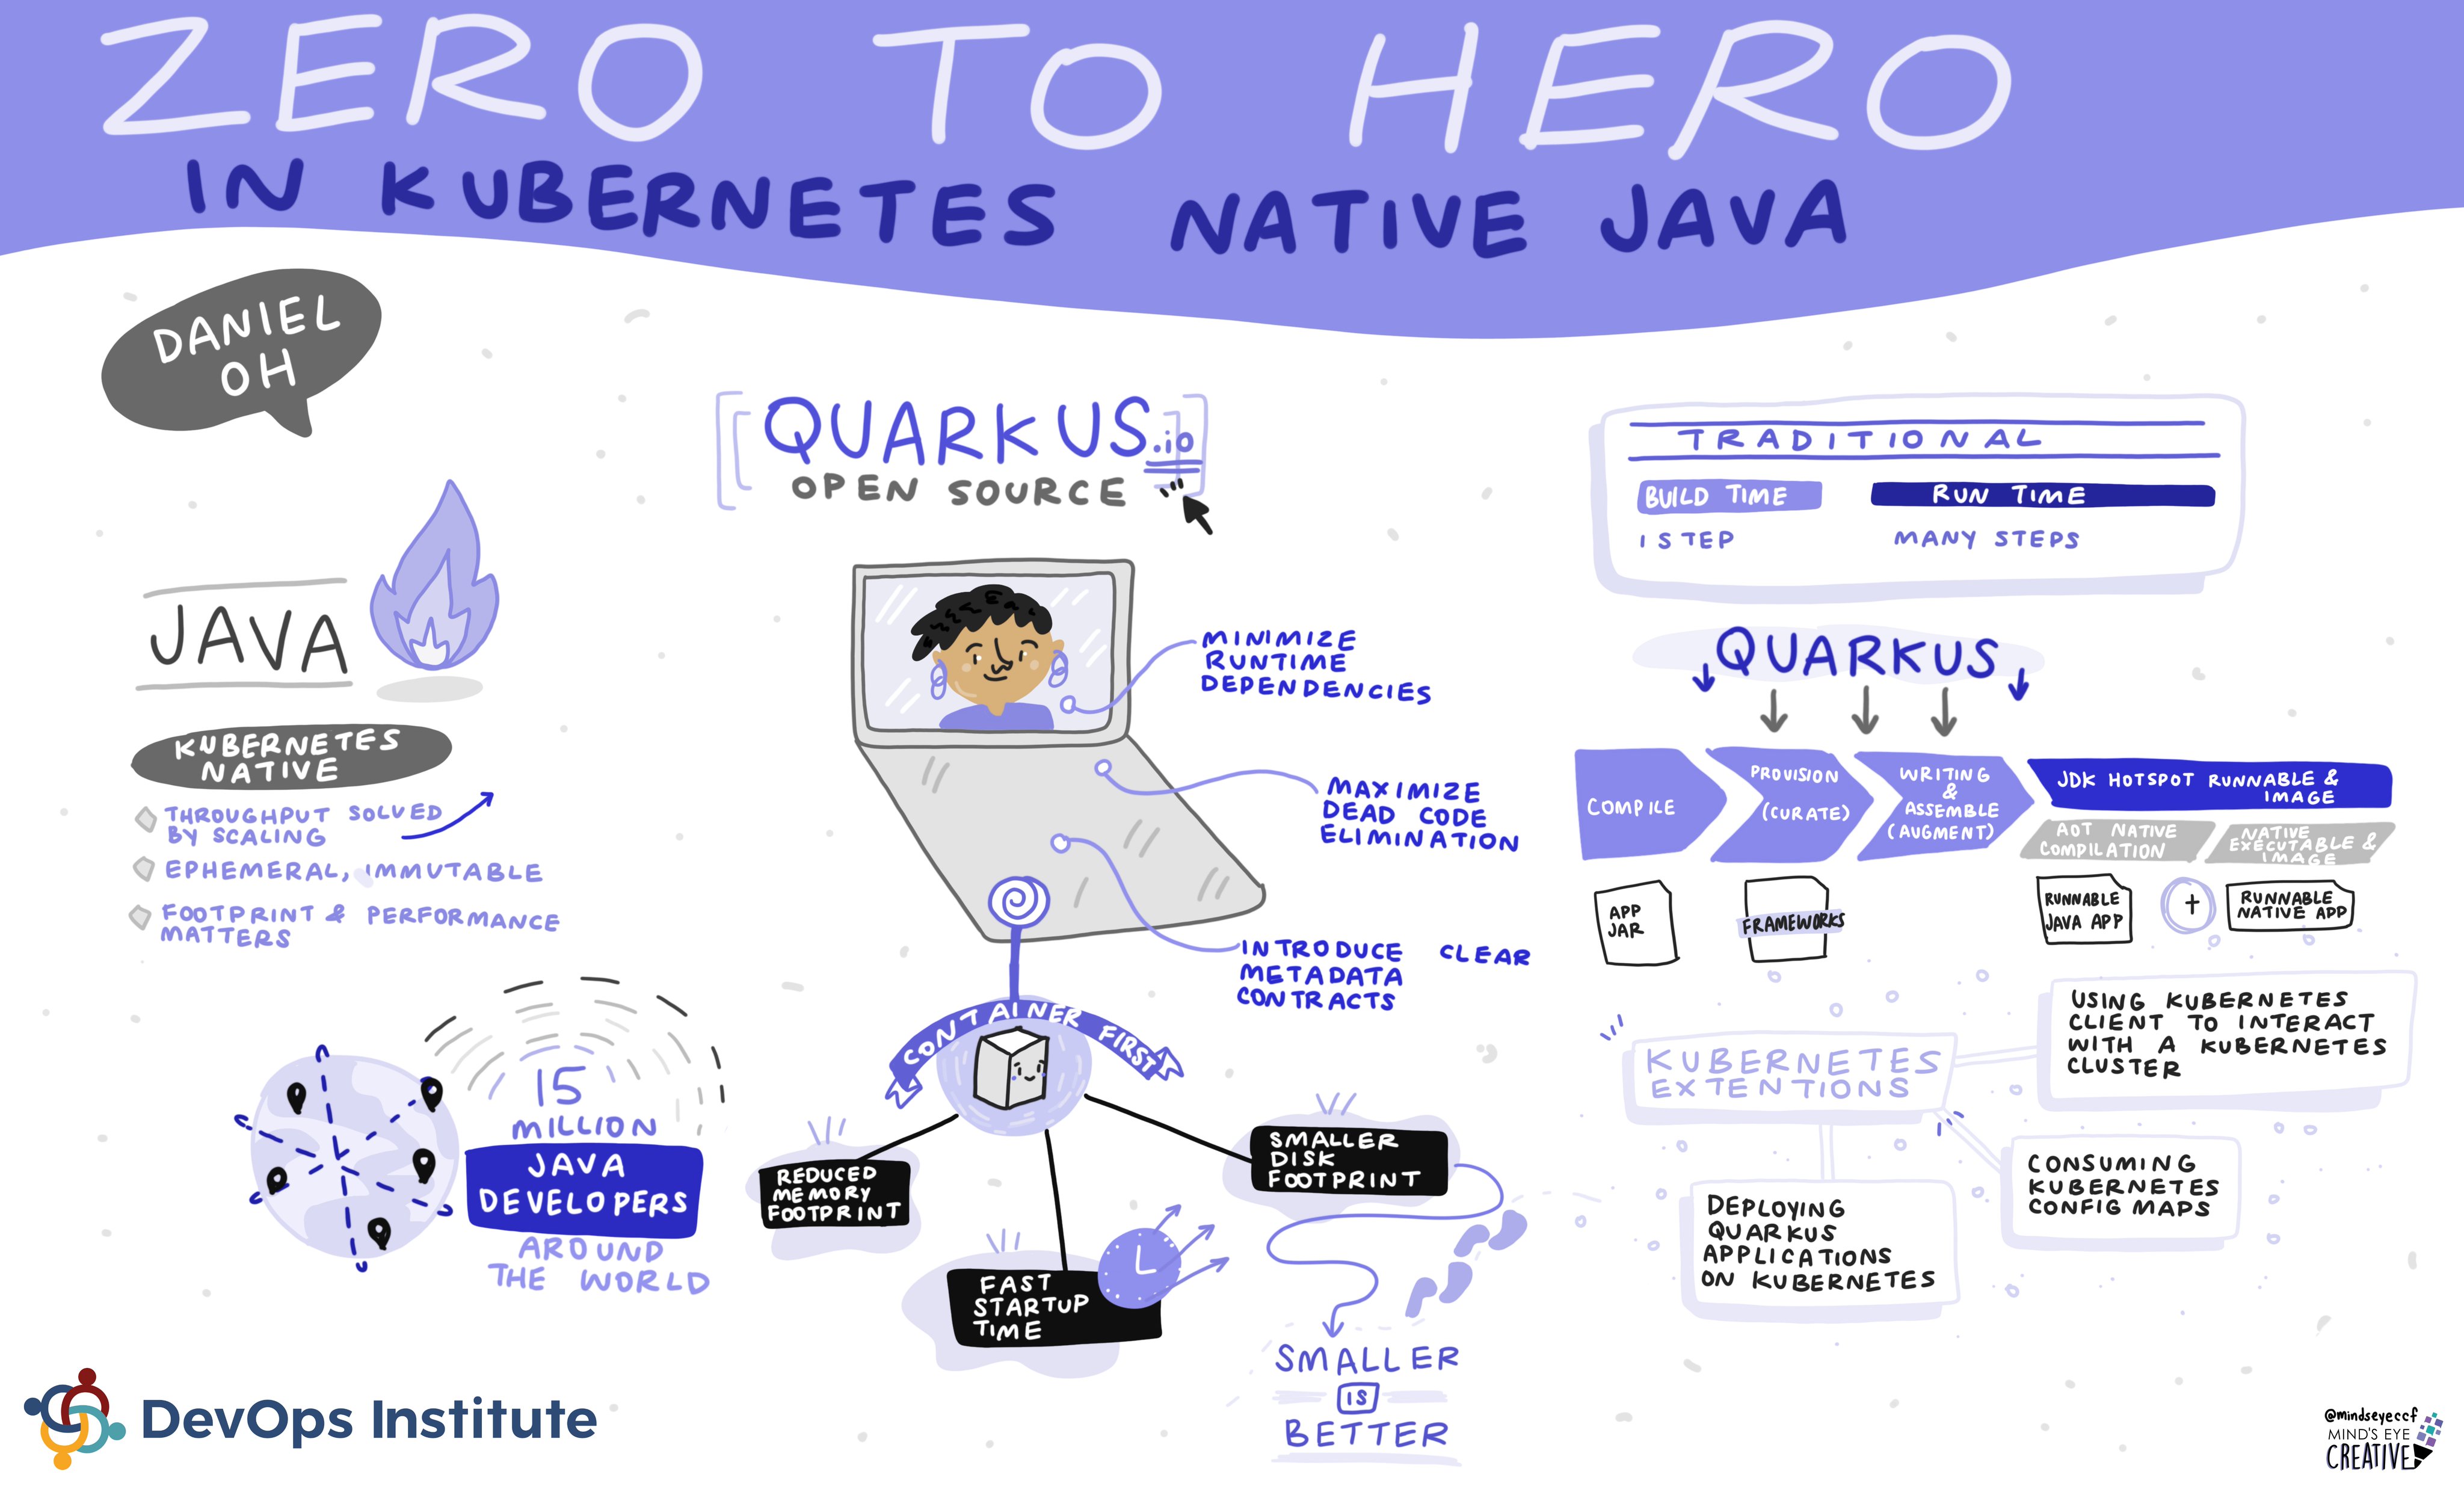 ZERO TO HERO
IN KUBERNETES NATIVE JAVA
DANIEL
OH
JAVA
KUBERNETES
NATIVE
THROUGHPUT SOLVED
BY SCALING
EPHEMERAL, IMMUTABLE
FOOTPRINT & PERFORMANCE
MATTERS
15
MILLION
JAVA
DEVELOPERS
AROUND
THE WORLD
QUARKUS.io
OPEN SOURCE
MINIMIZE
RUNTIME
DEPENDENCIES
MAXIMIZE
DEAD CODE
ELIMINATION
INTRODUCE CLEAR
METADATA
CONTRACTS
CONTAINER FIRST
REDUCED
MEMORY
FOOTPRINT
FAST
STARTUP
TIME
SMALLER
DISK
FOOTPRINT
SMALLER
IS
BETTER
TRADITIONAL
BUILD TIME
RUN TIME
1 STEP
MANY STEPS
QUARKUS
COMPILE
PROVISION
(CURATE)
WRITING
&
ASSEMBLE
(AUGMENT)
JDK HOTSPOT RUNNABLE &
IMAGE
AOT NATIVE
COMPILATION
NATIVE
EXECUTABLE &
IMAGE
APP
JAR
FRAMEWORKS
RUNNABLE
JAVA APP
+
RUNNABLE
NATIVE APP
KUBERNETES
EXTENTIONS
USING KUBERNETES
CLIENT TO INTERACT
WITH A KUBERNETES
CLUSTER
CONSUMING
KUBERNETES
CONFIG MAPS
DEPLOYING
QUARKUS
APPLICATIONS
ON KUBERNETES
DevOps Institute
@mindseyeccf
MIND'S EYE
CREATIVE